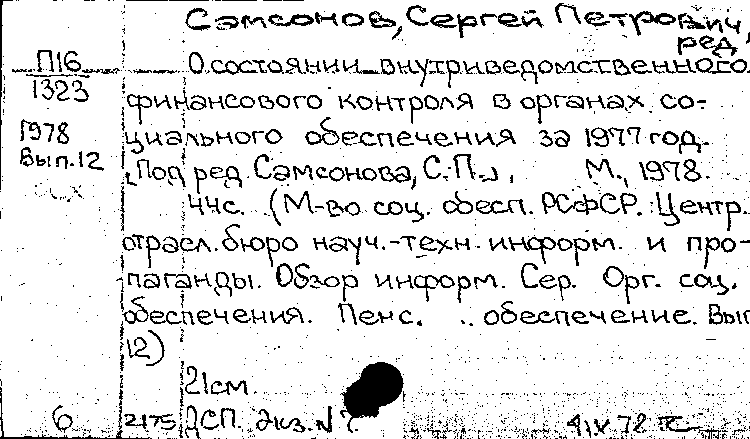 Самсонов, Сергей Петрович,
ред.
П16
1323
1978
Вып.12
О состоянии внутриведомственного
финансового контроля в органах со-
циального обеспечения за 1977 год.
[Под ред. Самсонова, С.П.],    М., 1978.
44с. (М-во соц. обесп. РСФСР. Центр.
отрасл. бюро науч.-техн. информ. и про-
паганды. Обзор информ. Сер. Орг. соц.
обеспечения. Пенс. обеспечение. Вып
12)
21см.
6 2175 ДСП. Экз. N 7.